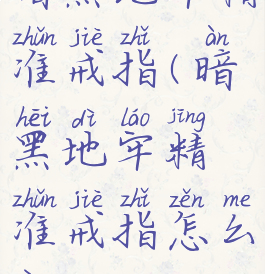 zhǔn jiè zhǐ àn
准戒指(暗
hēi dì láo jīng
黑地牢精
zhǔn jiè zhǐ zěn me
准戒指怎么